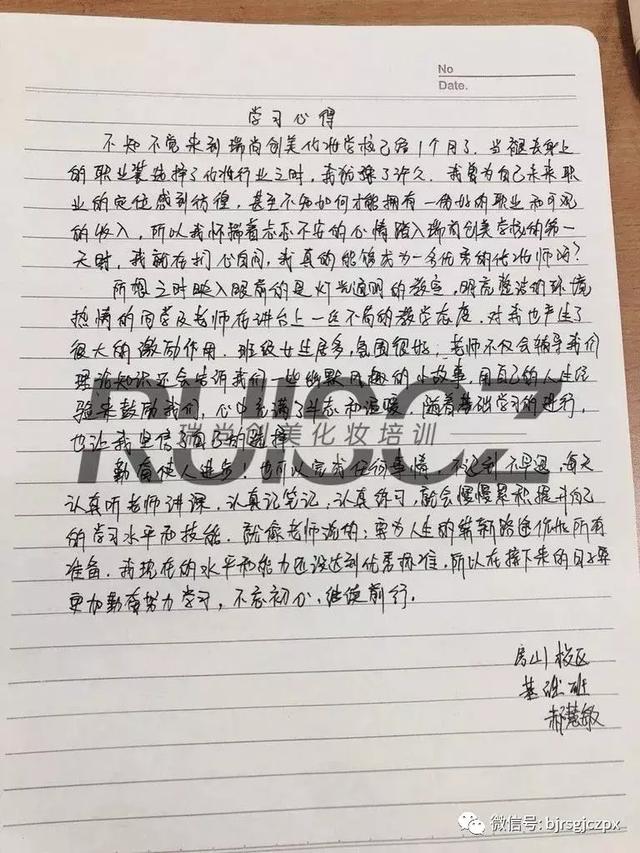 No
Date.
学习心得
不知不觉来到瑞尚创美化妆学校已经1个月了，当褪去身上
的职业装选择了化妆行业之时，我犹豫了许久。我曾为自己未来职
业的定位感到彷徨，甚至不知如何才能拥有一份好的职业和可观
的收入，所以我怀揣着忐忑不安的心情踏入瑞尚创美学校的第一
天时，我就在扪心自问，我真的能够成为一名优秀的化妆师吗？
所想之时映入眼帘的是灯光通明的教室，明亮整洁的环境
热情的同学及老师在讲台上一丝不苟的教学态度，对我也产生了
很大的激励作用。班级女生居多，氛围很好；老师不仅会辅导我们
理论知识还会告诉我们一些幽默风趣的小故事，用自己的人生经
验来鼓励我们，心中充满了斗志和温暖。随着基础学习的进行，
也让我坚信了自己的选择
RUISCZ
瑞尚创美化妆培训
勤奋使人进步！也可以完成任何事情，不迟到不早退，每天
认真听老师讲课，认真记笔记，认真练习，就会慢慢累积提升自己
的学习水平和技能。就像老师说的：要为人生的崭新路途作出所有
准备。我现在的水平和能力还没达到优秀标准，所以在接下来的日子要
更加勤奋努力学习，不忘初心，继续前行。
房山校区
基础班
郝慧敏
微信号: bjrsgjczpx